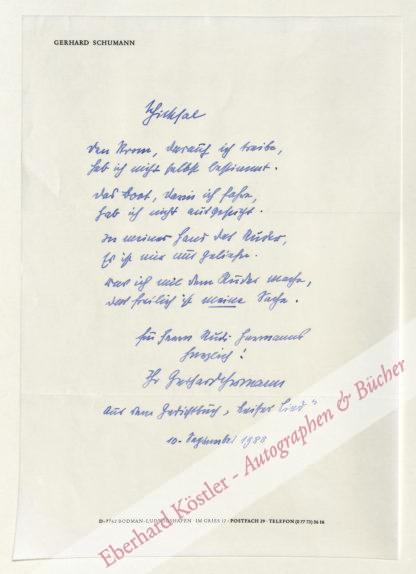 GERHARD SCHUMANN
Schicksal
Den Strom, darauf ich treibe,
hab ich nicht selbst bestimmt.
Das Boot, darin ich fahre,
hab ich nicht ausgesucht.
In meiner Hand das Ruder,
Es ist mir nur geliehn.
Was ich mit dem Ruder mache,
das freilich ist meine Sache.
für Herrn Rudi Hermanns
herzlich!
Ihr Gerhard Schumann
Aus dem Gedichtbuch "Leises Lied"
10. September 1988
D-7762 BODMAN-LUDWIGSHAFEN · IM GRIES 17 · POSTFACH 29 · TELEFON (0 77 73) 56 16
Eberhard Köstler - Autographen & Bücher